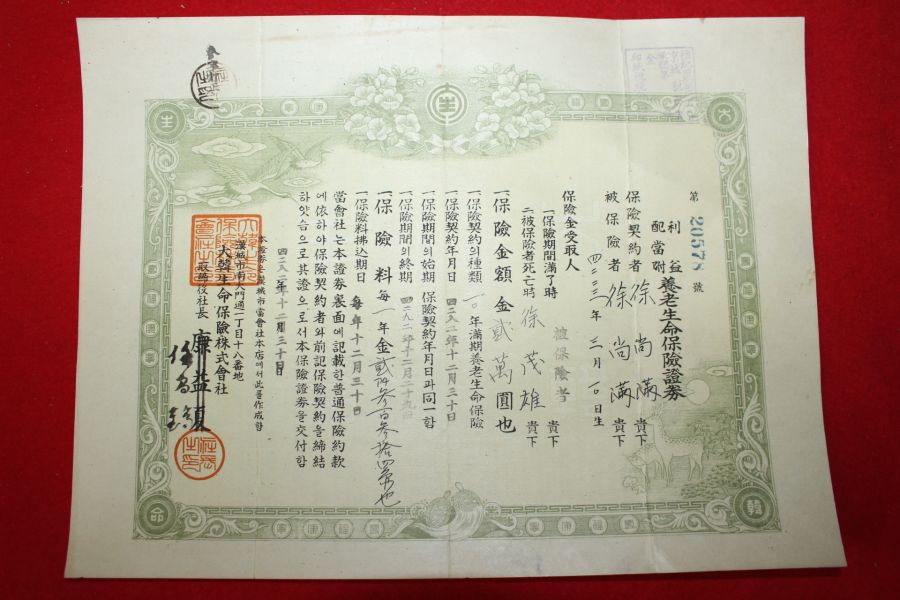 第 20578 號
利益
配當附 養老生命保險證券
保險契約者 徐尚滿 貴下
被保險者 徐尚滿 貴下
四二三三年三月一〇日生
保險金受取人
一保險期間滿了時 被保險者 貴下
二被保險者死亡時 徐茂雄 貴下
一保險金額 金貳萬圓也
一保險契約의種類 一〇年滿期養老生命保險
一保險契約年月日 四二八二年十二月三十日
一保險期間의始期 保險契約年月日과同一함
一保險期間의終期 四二九二年十二月二十九日
一保險料 每一年金貳阡參百參拾四圓也
一保險料拂込期日 每年十二月三十日
當會社는本證券裏面에記載한普通保險約款
에依하야保險契約者와前記保險契約을締結
하얏슴으로其證으로서本保險證券을交付함
四二八二年十二月三十日
本證券은漢城市當會社本店에서此를作成함
漢城市南大門通一丁目十八番地
大韓生命保險株式會社
取締役社長 康益
大
韓
生
命